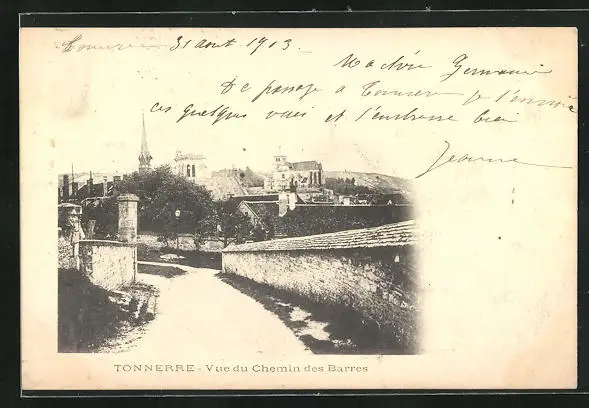 Tonnerre 31 aout 1903.
Ma chère Germaine
De passage à Tonnerre je t'envoie
ces quelques vues et t'embrasse bien
Jeanne
TONNERRE - Vue du Chemin des Barres